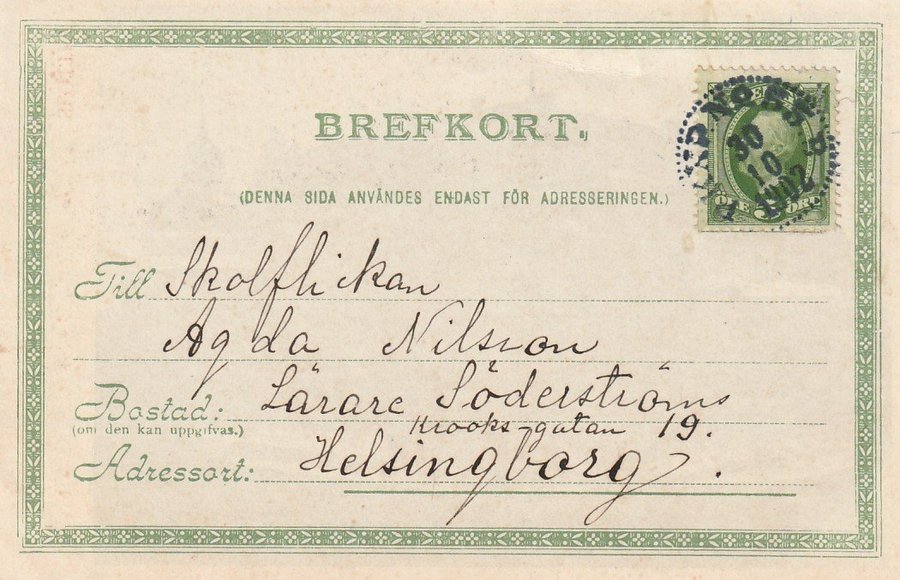 BREFKORT.
(DENNA SIDA ANVÄNDES ENDAST FÖR ADRESSERINGEN.)
30
10
1902
Till Skolflickan
Agda Nilsson
Bostad: Lärare Söderströms
(om den kan uppgifvas.) Krooks-gatan 19.
Adressort: Helsingborg.